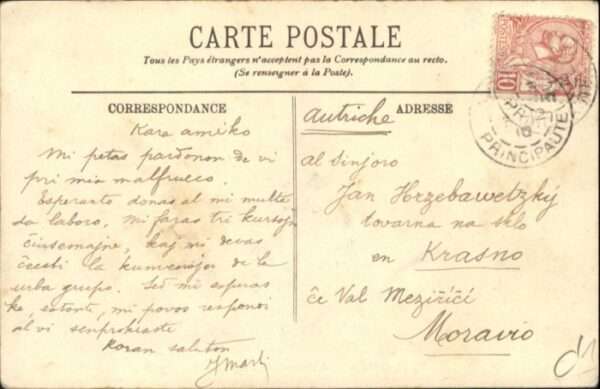 CARTE POSTALE
Tous les Pays étrangers n'acceptent pas la Correspondance au recto.
(Se renseigner à la Poste).
CORRESPONDANCE
ADRESSE
Kara amiko
Mi petas pardonon de vi
pri mia malfrueco.
Esperanto donas al mi multe
da laboro. Mi faras tri kursojn
ĉiusemajne, kaj mi devas
ĉeesti la kunvenojn de la
urba grupo. Sed mi esperas
ke, somere, mi povos respondi
al vi senprokraste
Koran saluton
Autriche
al Sinjoro
Jan Hrzebawetzký
tovarna na sklo
en Krasno
ĉe Val Meziříčí
Moravio
10
PRINCIPAUTÉ